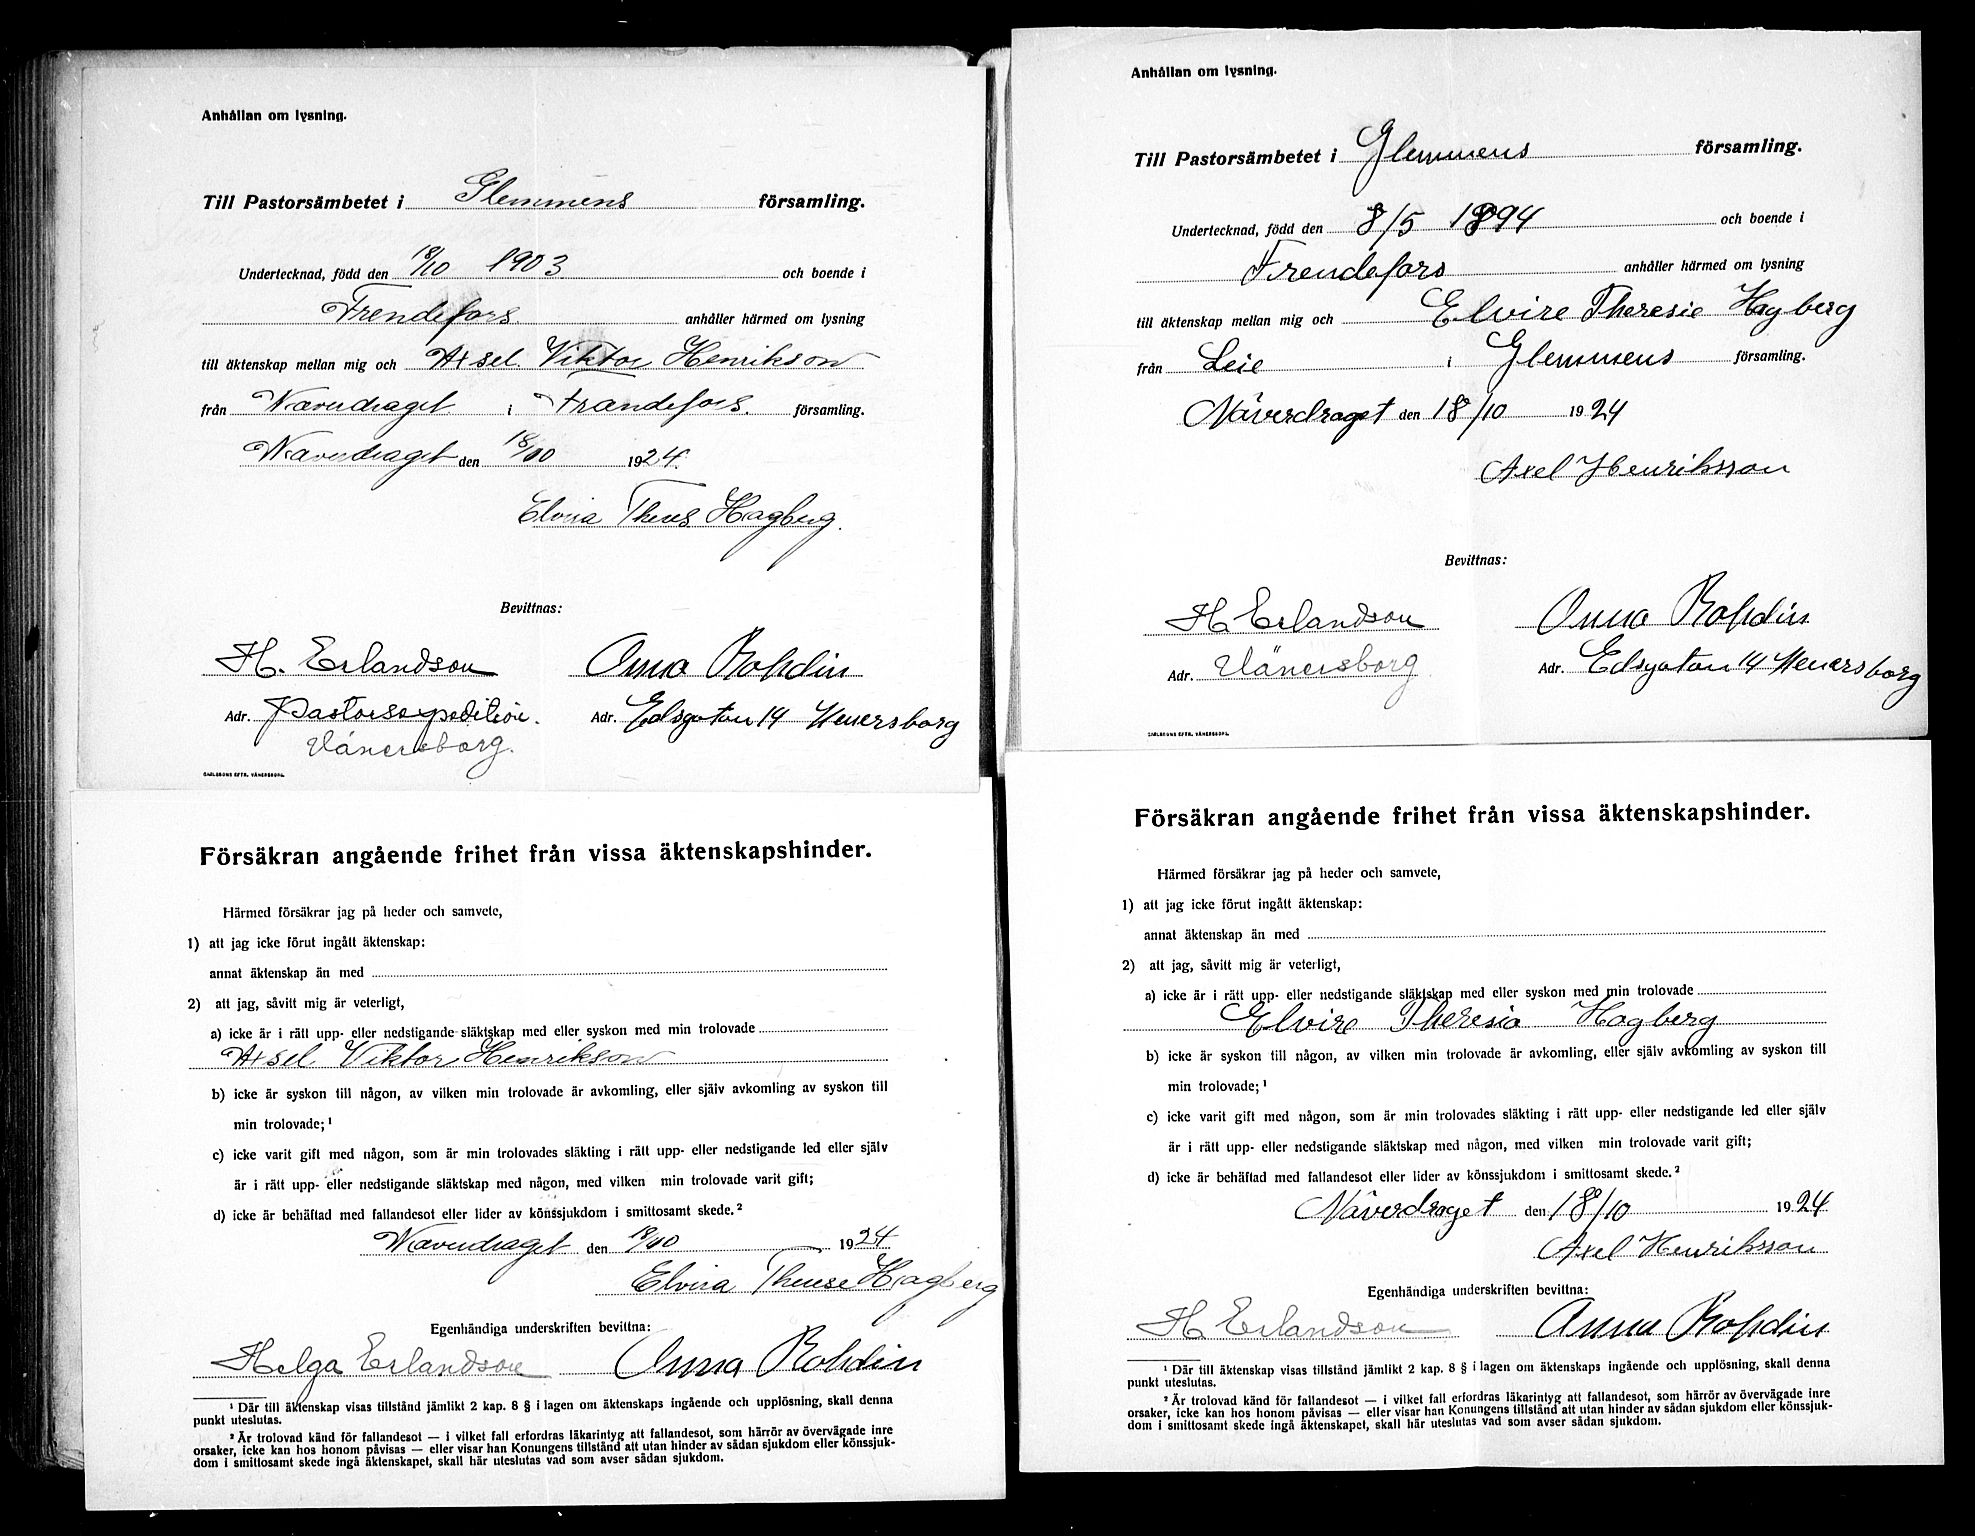 Anhållan om lysning.
Till Pastorsämbetet i Glemmens församling.
Undertecknad, född den 18/10 1903 och boende i
Frendefors anhåller härmed om lysning
till äktenskap mellan mig och Axsel Viktor Henrikson
från Näverdraget i Frandefors församling.
Näverdraget den 18/10 1924.
Elvira Theres Hagberg.
Bevittnas:
H. Erlandson Anna Rohdin
Adr. Pastorsexpedition. Adr. Edsgatan 14 Wenersborg
Vänersborg.
CARLSONS EFTR. VÄNERSBORG.
Försäkran angående frihet från vissa äktenskapshinder.
Härmed försäkrar jag på heder och samvete,
1) att jag icke förut ingått äktenskap:
annat äktenskap än med
2) att jag, såvitt mig är veterligt,
a) icke är i rätt upp- eller nedstigande släktskap med eller syskon med min trolovade
Axsel Viktor Henrikson
b) icke är syskon till någon, av vilken min trolovade är avkomling, eller själv avkomling av syskon till
min trolovade;¹
c) icke varit gift med någon, som är min trolovades släkting i rätt upp- eller nedstigande led eller själv
är i rätt upp- eller nedstigande släktskap med någon, med vilken min trolovade varit gift;
d) icke är behäftad med fallandesot eller lider av könssjukdom i smittosamt skede.²
Näverdraget den 18/10 1924
Elvira Therese Hagberg
Egenhändiga underskriften bevittna:
Helga Erlandson Anna Rohdin
¹ Där till äktenskap visas tillstånd jämlikt 2 kap. 8 § i lagen om äktenskaps ingående och upplösning, skall denna
punkt uteslutas.
² Är trolovad känd för fallandesot — i vilket fall erfordras läkarintyg att fallandesot, som härrör av övervägade inre
orsaker, icke kan hos honom påvisas — eller visar han Konungens tillstånd att utan hinder av sådan sjukdom eller könssjuk-
dom i smittosamt skede ingå äktenskapet, skall här uteslutas vad som avser sådan sjukdom.
Anhållan om lysning.
Till Pastorsämbetet i Glemmens församling.
Undertecknad, född den 8/5 1894 och boende i
Frendefors anhåller härmed om lysning
till äktenskap mellan mig och Elvire Theresie Hagberg
från Leie i Glemmens församling.
Näverdraget den 18/10 1924
Axel Henriksson
Bevittnas:
H. Erlandson Anna Rohdin
Adr. Vänersborg Adr. Edsgatan 14 Wenersborg
CARLSONS EFTR. VÄNERSBORG.
Försäkran angående frihet från vissa äktenskapshinder.
Härmed försäkrar jag på heder och samvete,
1) att jag icke förut ingått äktenskap:
annat äktenskap än med
2) att jag, såvitt mig är veterligt,
a) icke är i rätt upp- eller nedstigande släktskap med eller syskon med min trolovade
Elvire Theresia Hagberg
b) icke är syskon till någon, av vilken min trolovade är avkomling, eller själv avkomling av syskon till
min trolovade;¹
c) icke varit gift med någon, som är min trolovades släkting i rätt upp- eller nedstigande led eller själv
är i rätt upp- eller nedstigande släktskap med någon, med vilken min trolovade varit gift;
d) icke är behäftad med fallandesot eller lider av könssjukdom i smittosamt skede.²
Näverdraget den 18/10 1924
Axel Henriksson
Egenhändiga underskriften bevittna:
H. Erlandson Anna Rohdin
¹ Där till äktenskap visas tillstånd jämlikt 2 kap. 8 § i lagen om äktenskaps ingående och upplösning, skall denna
punkt uteslutas.
² Är trolovad känd för fallandesot — i vilket fall erfordras läkarintyg att fallandesot, som härrör av övervägade inre
orsaker, icke kan hos honom påvisas — eller visar han Konungens tillstånd att utan hinder av sådan sjukdom eller könssjuk-
dom i smittosamt skede ingå äktenskapet, skall här uteslutas vad som avser sådan sjukdom.